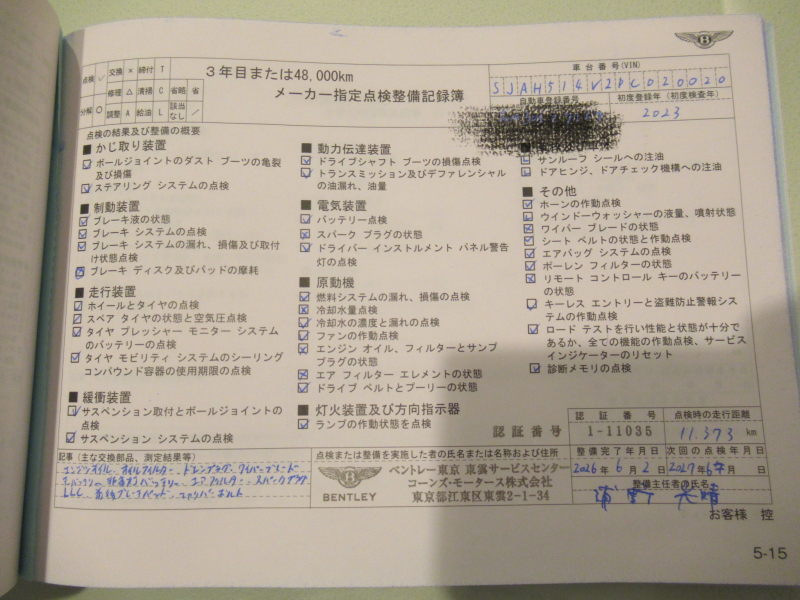 点検 ✓ 交換 × 締付 T
修理 △ 清掃 C 省略 省
分解 ○ 調整 A 給油 L 該当なし ／
3年目または48,000km
メーカー指定点検整備記録簿
車台番号(VIN)
SJAH514V2PC020020
自動車登録番号 初度登録年（初度検査年）
2023
点検の結果及び整備の概要
■ かじ取り装置
ボールジョイントのダスト ブーツの亀裂
及び損傷
ステアリング システムの点検
■ 制動装置
ブレーキ液の状態
ブレーキ システムの点検
ブレーキ システムの漏れ、損傷及び取付
け状態点検
ブレーキ ディスク及びパッドの摩耗
■ 走行装置
ホイールとタイヤの点検
スペア タイヤの状態と空気圧点検
タイヤ プレッシャー モニター システム
のバッテリーの点検
タイヤ モビリティ システムのシーリング
コンパウンド容器の使用期限の点検
■ 緩衝装置
サスペンション取付とボールジョイントの
点検
サスペンション システムの点検
■ 動力伝達装置
ドライブシャフト ブーツの損傷点検
トランスミッション及びデファレンシャル
の油漏れ、油量
■ 電気装置
バッテリー点検
スパーク プラグの状態
ドライバー インストルメント パネル警告
灯の点検
■ 原動機
燃料システムの漏れ、損傷の点検
冷却水量点検
冷却水の濃度と漏れの点検
ファンの作動点検
エンジン オイル、フィルターとサンプ
プラグの状態
エア フィルター エレメントの状態
ドライブ ベルトとプーリーの状態
■ 灯火装置及び方向指示器
ランプの作動状態を点検
サンルーフ シールへの注油
ドアヒンジ、ドアチェック機構への注油
■ その他
ホーンの作動点検
ウインドーウォッシャーの液量、噴射状態
ワイパー ブレードの状態
シート ベルトの状態と作動点検
エアバッグ システムの点検
ポーレン フィルターの状態
リモート コントロール キーのバッテリー
の状態
キーレス エントリーと盗難防止警報シス
テムの作動点検
ロード テストを行い性能と状態が十分で
あるか、全ての機能の作動点検、サービス
インジケーターのリセット
診断メモリの点検
認証番号
認証番号 点検時の走行距離
1-11035 11,373 km
記事（主な交換部品、測定結果等）
エンジンオイル、オイルフィルター、ドレンプラグ、ワイパーブレード
エアフィルター、スパークプラグ
LLC
点検または整備を実施した者の氏名または名称および住所
BENTLEY
ベントレー東京 東雲サービスセンター
コーンズ・モータース株式会社
東京都江東区東雲2-1-34
整備完了年月日 次回の点検年月日
2026年 6月 2日 2027年 6月 日
整備主任者の氏名
お客様 控
5-15